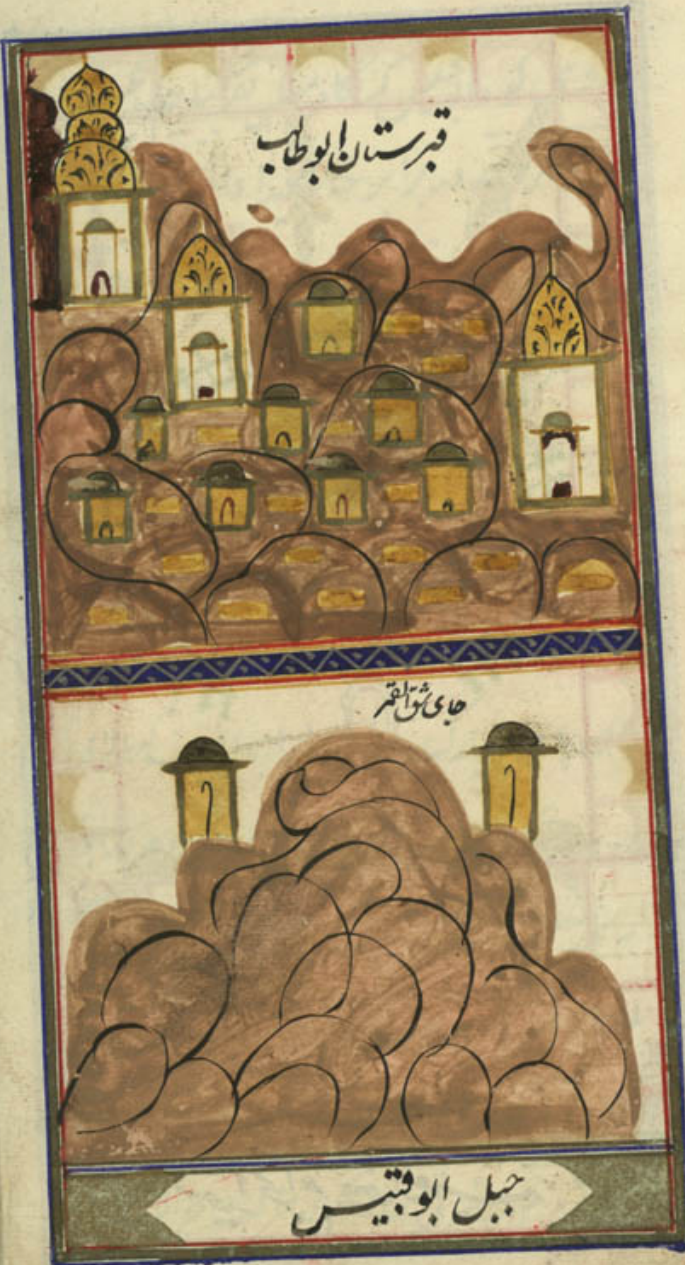 قبرستان ابوطالب
جای شق القمر
جبل ابوقبیس